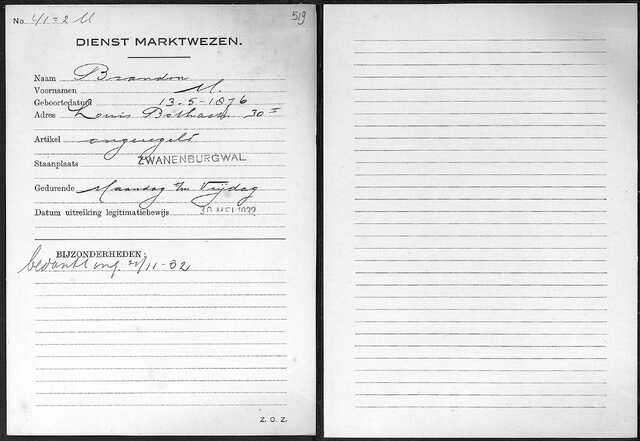 No. 41=2 M
519
DIENST MARKTWEZEN.
Naam Brandon
Voornamen M.
Geboortedatum 13-5-1876
Adres Louis Bothastr 30 I
Artikel ongeregeld
Staanplaats ZWANENBURGWAL
Gedurende Maandag t/m Vrijdag
Datum uitreiking legitimatiebewijs 30 MEI 1922
BIJZONDERHEDEN:
bedankt ing. 21/11-32
Z. O. Z.